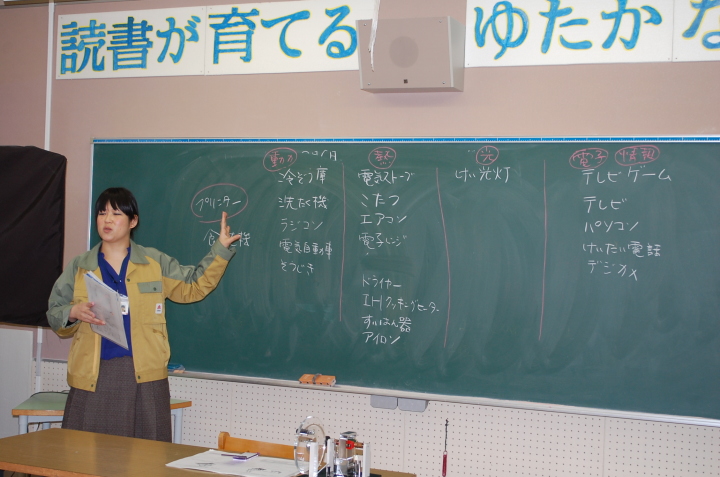 読書が育てる ゆたかな
動力
プリンター
冷ぞう庫
洗たく機
ラジコン
電気自動車
そうじき
熱
電気ストーブ
こたつ
エアコン
電子レンジ
ドライヤー
IHクッキングヒーター
すいはん器
アイロン
光
けい光灯
電子 情報
テレビゲーム
テレビ
パソコン
けいたい電話
デジカメ